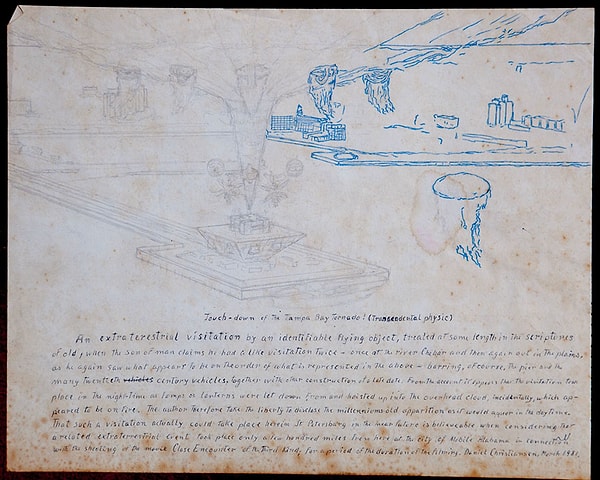 Touch-down of the Tampa Bay Tornado! (Transendental physic)
An extraterestrial visitation by an identifiable flying object, treated at some length in the scriptures
of old, when the son of man claims he had a like visitation twice - once at the river Chebar and then again out in the plains,
as he again saw what appeart to be on the order of what is represented in the above - barring, of course, the pier and the
many twenteth vehicles century vehicles, together with other construction of a late date. From the account it appears that the visitation took
place in the night-time as lamps or lanterns were let down from and hoisted up into the overhead cloud, incidentally, which ap-
peared to be on fire. The author therefore take the liberty to disclose the millenniums old apparition as it would appear in the daytime.
That such a visitation actually could take place here in St Petersburg in the near future is believeable when considering that
a related extraterrestrial event took place only a few hundred miles from here at the city of Mobile Alabama in connection
with the shooting of the movie Close Encounter of the Third Kind, for a period of the duration of the filming. Daniel Christiansen, March 1981.